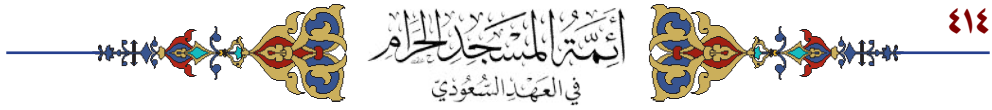 ٤١٤
أَئِمَّةُ المَسْجِدِ الحَرَامِ
في العَهْدِ السُّعُودِيّ